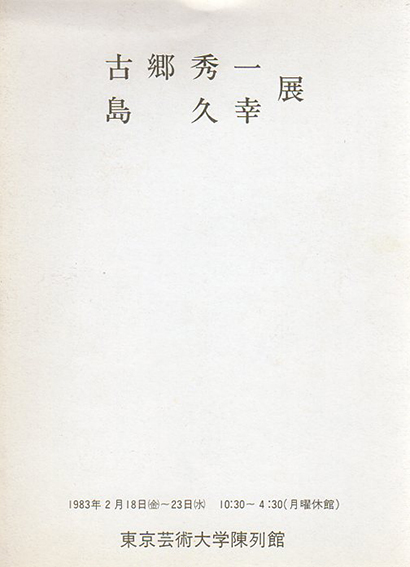 古郷秀一
島久幸
展
1983年2月18日㈮～23日㈬ 10:30～4:30(月曜休館)
東京芸術大学陳列館